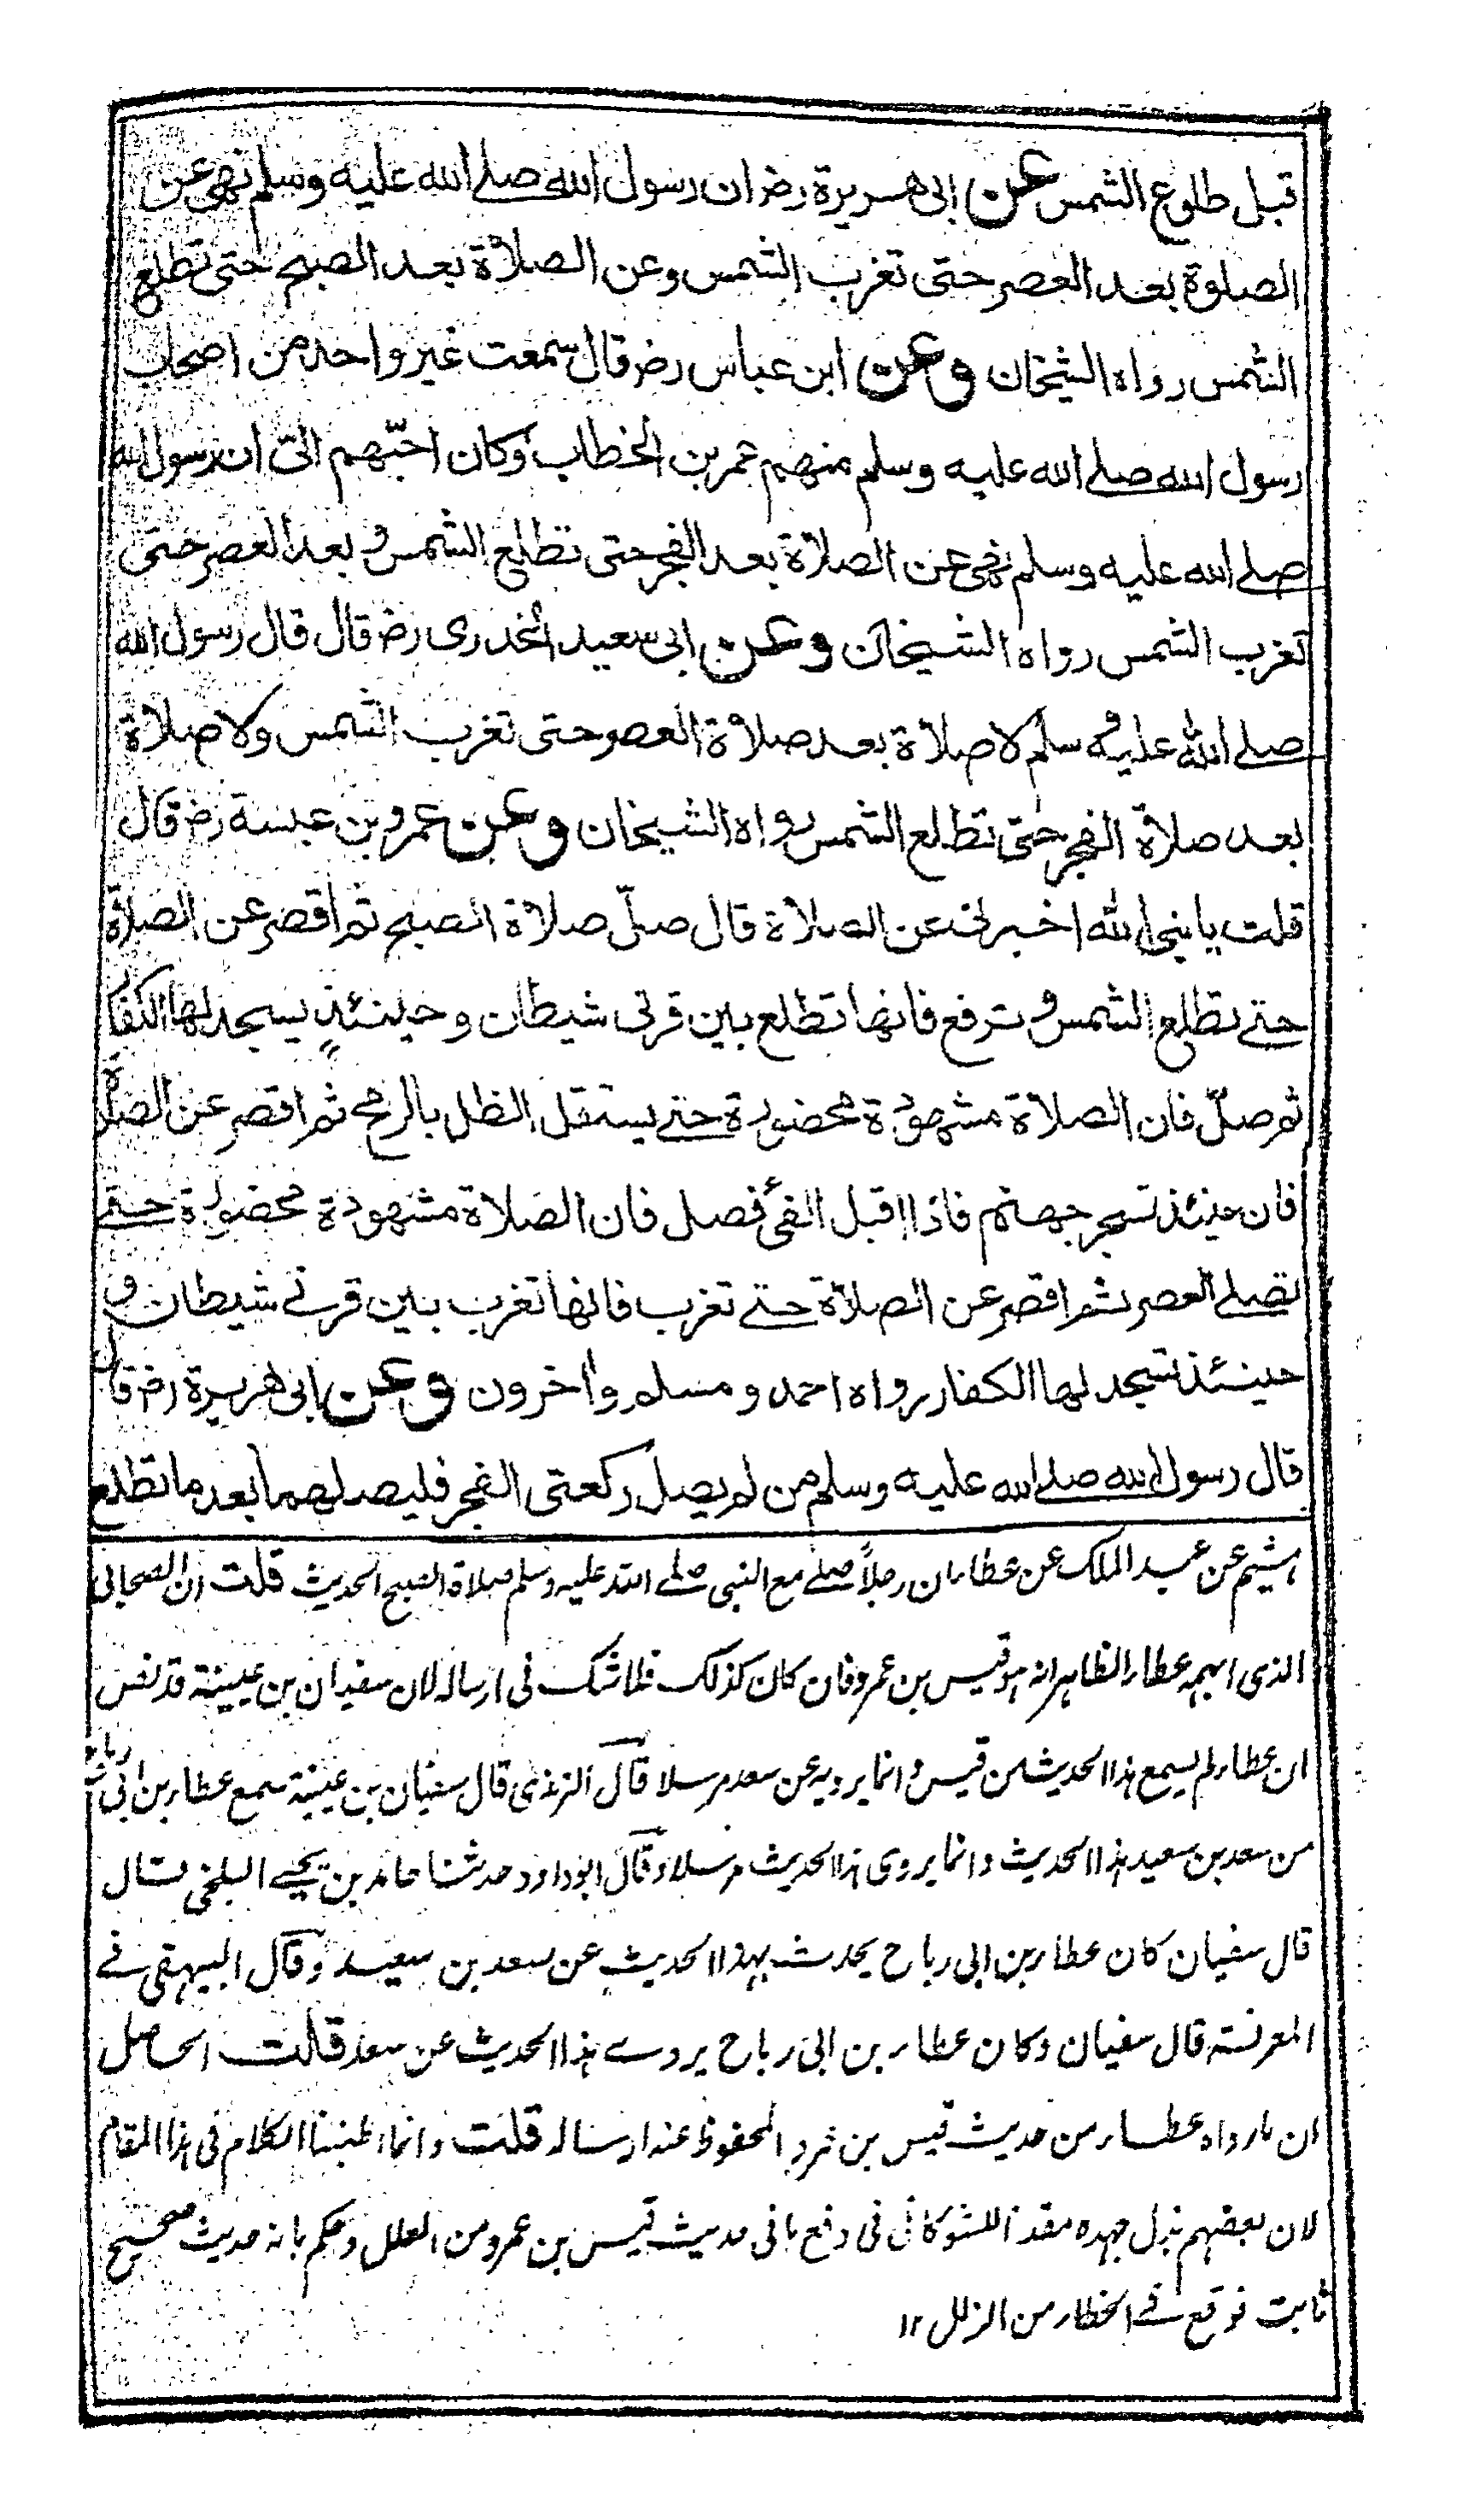 قبل طلوع الشمس عن ابى هريرة رض ان رسول الله صلے الله عليه وسلم نهى عن
الصلوة بعد العصر حتى تغرب الشمس وعن الصلاة بعد الصبح حتى تطلع
الشمس رواه الشيخان وعن ابن عباس رض قال سمعت غير واحد من اصحاب
رسول الله صلے الله عليه وسلم منهم عمر بن الخطاب وكان احبّهم الىّ ان رسول الله
صلے الله عليه وسلم نهى عن الصلاة بعد الفجر حتى تطلع الشمس و بعد العصر حتى
تغرب الشمس رواه الشيخان وعن ابى سعيد الخدرى رض قال قال رسول الله
صلے الله عليه وسلم لا صلاة بعد صلاة العصر حتى تغرب الشمس ولا صلاة
بعد صلاة الفجر حتى تطلع الشمس رواه الشيخان وعن عمرو بن عبسة رض قال
قلت يا نبى الله اخبرنى عن الصلاة قال صلّ صلاة الصبح ثم اقصر عن الصلاة
حتے تطلع الشمس و ترفع فانها تطلع بين قرنى شيطان وحينئذٍ يسجد لها الكفار
ثم صلّ فان الصلاة مشهودة محضورة حتے يستقل الظل بالرمح ثم اقصر عن الصلاة
فان حينئذ تسجر جهنم فاذا اقبل الفئ فصل فان الصلاة مشهودة محضورة حتے
تصلے العصر ثم اقصر عن الصلاة حتے تغرب فانها تغرب بين قرنے شيطان و
حينئذ تسجد لها الكفار رواه احمد ومسلم واخرون وعن ابى هريرة رض قال
قال رسول الله صلے الله عليه وسلم من لم يصل ركعتى الفجر فليصلهما بعد ما تطلع
هشيم عن عبد الملك عن عطاء ان رجلاً صلے مع النبى صلے الله عليه وسلم صلاة الصبح الحديث قلت ان الصحابى
الذى ابهمه عطاء الظاهر انه هو قيس بن عمرو فان كان كذلك فلا شك فى ارساله لان سفيان بن عيينة قد نص
ان عطاء لم يسمع هذا الحديث من قيس و انما يرويه عن سعد مرسلا قال الترمذى قال سفيان بن عيينة سمع عطاء بن ابى رباح
من سعد بن سعيد هذا الحديث وانما يروى هذا الحديث مرسلا وقال ابو داود حدثنا حامد بن يحيے البلخى قال
قال سفيان كان عطاء بن ابى رباح يحدث بهذا الحديث عن سعد بن سعيد وقال البيهقى فے
المعرفة قال سفيان وكان عطاء بن ابى رباح يروے هذا الحديث عن سعد قلت الحاصل
ان ما رواه عطاء من حديث قيس بن عمرو المحفوظ عنه ارساله قلت وانما اطنبنا الكلام فى هذا المقام
لان بعضهم بذل جهده مقلدا للشوكانى فى دفع ما فى حديث قيس بن عمرو من العلل وحكم بانه حديث صحيح
ثابت فوقع فے الخطاء من الزلل ١٢